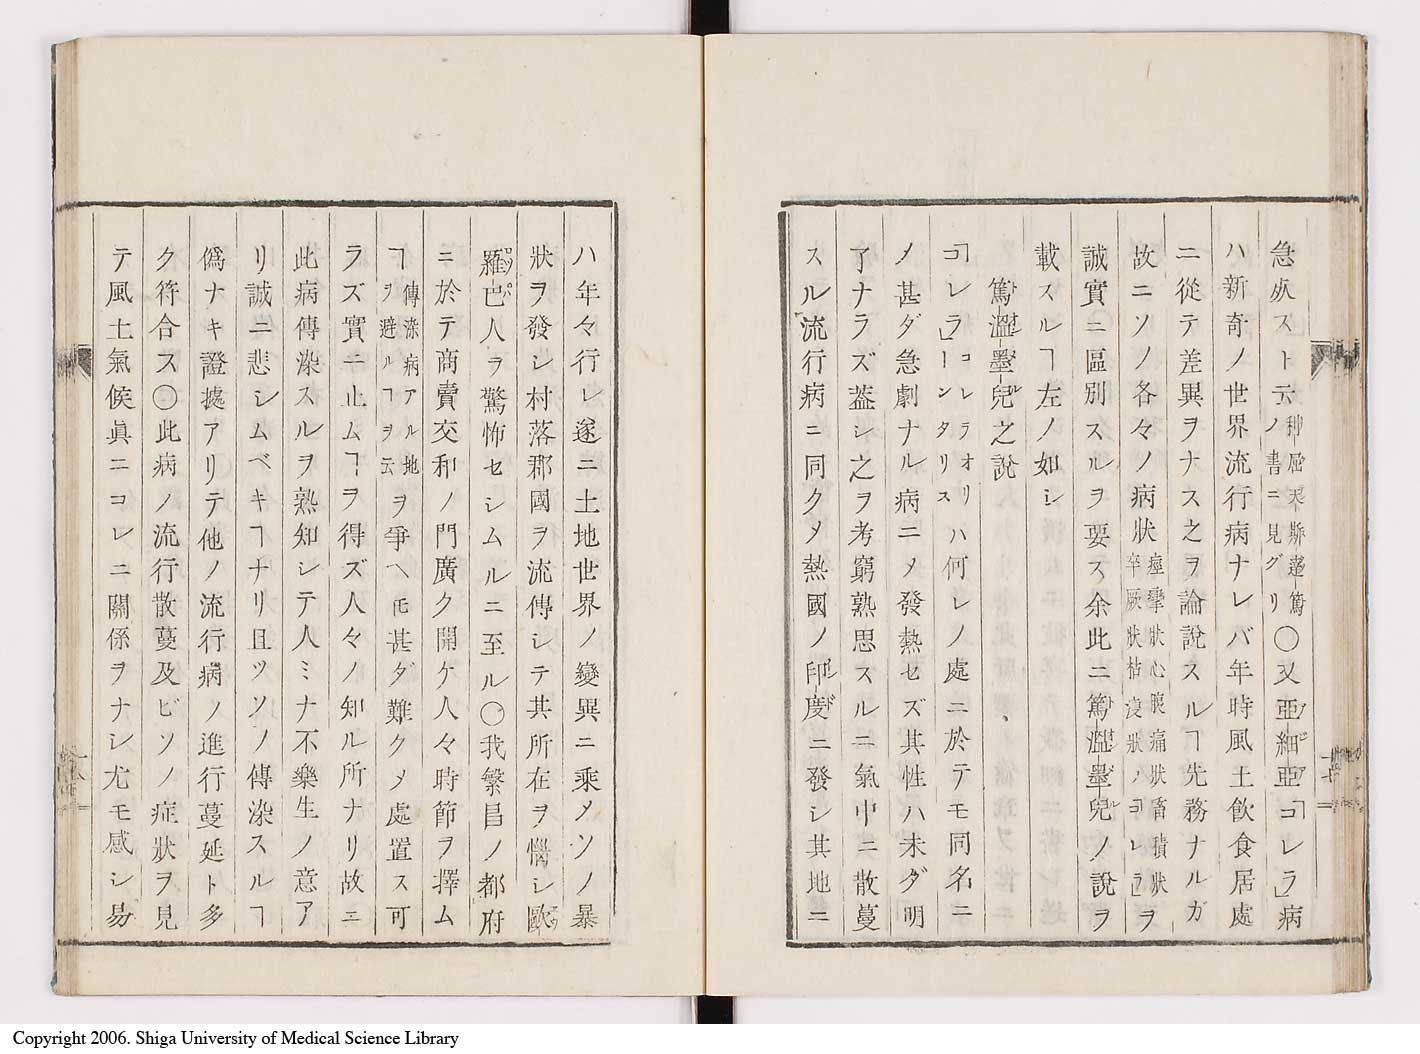 急炊スト云ノ書ニ見グリ〇又亜細亜「コレラ」病
ハ新奇ノ世界流行病ナレバ年時風土飲食居處
ニ從テ差異ヲナス之ヲ論說スルヿ先務ナルガ
故ニソノ各々ノ病狀痙攣狀心腹痛狀畜積狀卒厥狀枯浚狀ノ「コレラ」ヲ
誠實ニ區別スルヲ要ス余此ニ篤溫墨兒ノ說ヲ
載スルヿ左ノ如シ
篤溫墨兒之說
「コレラ」コレラオリーンタリスハ何レノ處ニ於テモ同名ニ
メ甚ダ急劇ナル病ニメ發熱セズ其性ハ未ダ明
了ナラズ蓋シ之ヲ考窮熟思スルニ氣中ニ散蔓
スル流行病ニ同クメ熱國ノ印度ニ發シ其地ニ
ハ年々行レ遂ニ土地世界ノ變異ニ乘メソノ暴
狀ヲ發シ村落郡國ヲ流傳シテ其所在ヲ惱シ歐
羅巴人ヲ驚怖セシムルニ至ル〇我繁昌ノ都府
ニ於テ商賣交和ノ門廣ク開ケ人々時節ヲ擇ム
ヿ傳染病アル地ヲ避ルヿヲ云ヲ爭ヘ𪜈甚ダ難クメ處置ス可
ラズ實ニ止ムヿヲ得ズ人々ノ知ル所ナリ故ニ
此病傳染スルヲ熟知シテ人ミナ不樂生ノ意ア
リ誠ニ悲シムベキヿナリ且ツソノ傳染スルヿ
僞ナキ證據アリテ他ノ流行病ノ進行蔓延ト多
ク符合ス〇此病ノ流行散蔓及ビソノ症狀ヲ見
テ風土氣候眞ニコレニ關係ヲナシ尤モ感シ易
十七
十八
Copyright 2006. Shiga University of Medical Science Library